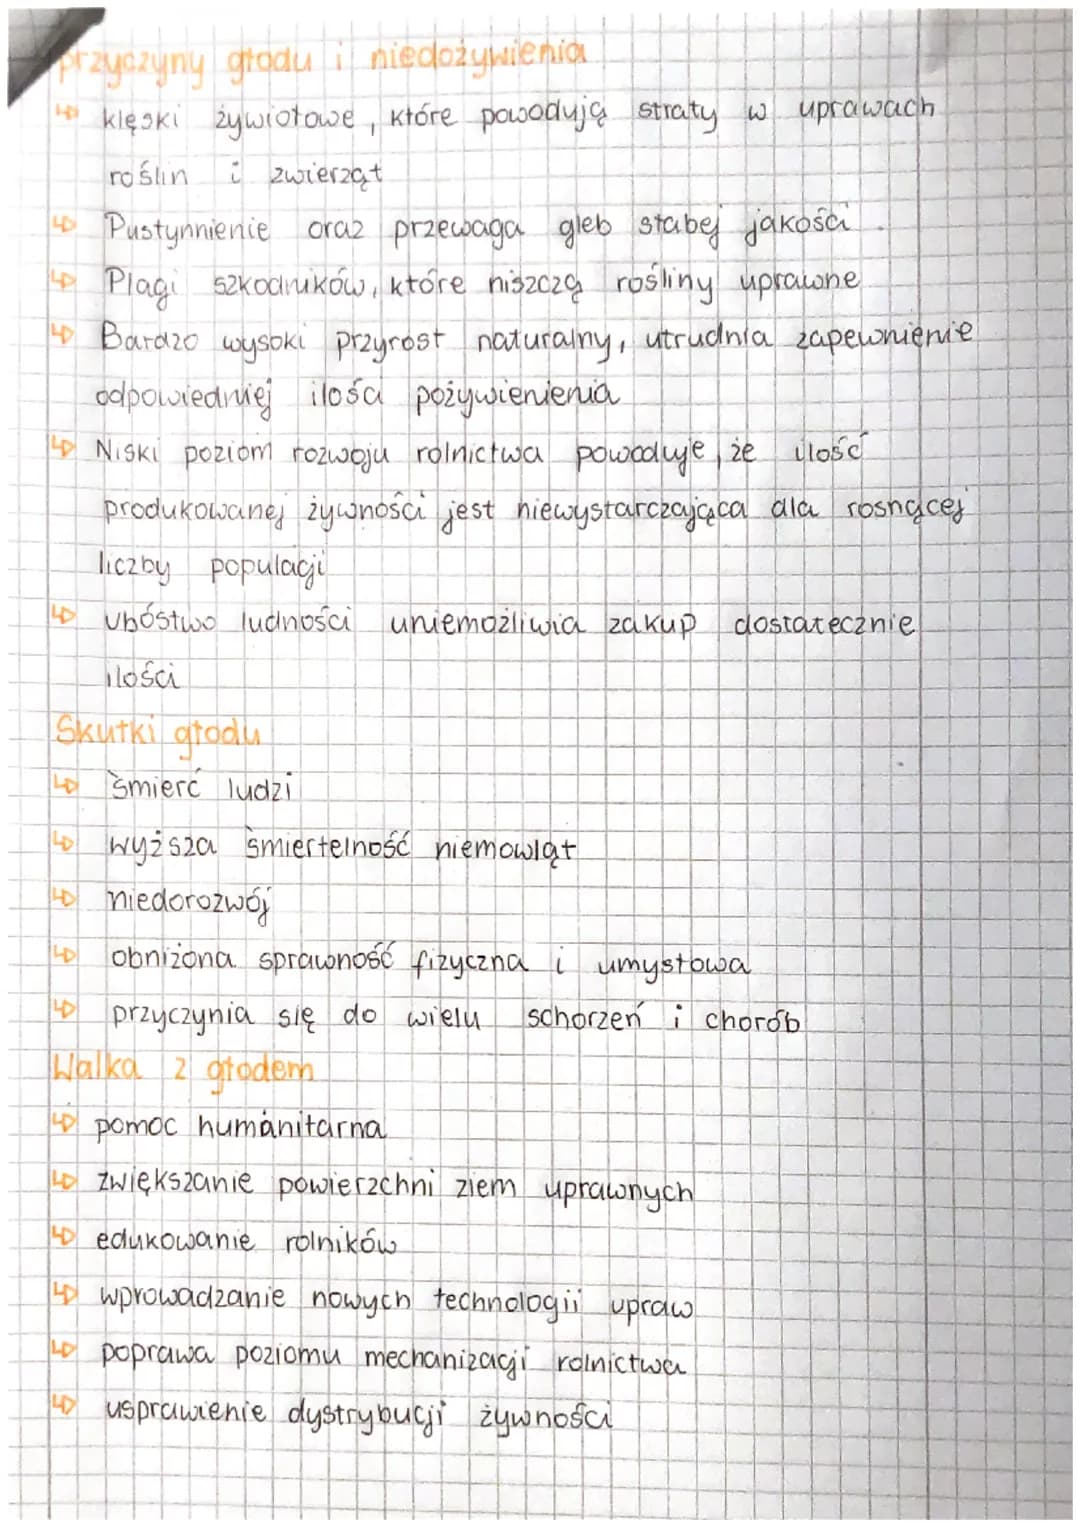 przyczyny głodu i niedożywienia
↳ klęski żywiołowe, które powodują straty w uprawach
roślin i zwierząt
↳ Pustynnienie oraz przewaga gleb słabej jakości.
↳ Plagi szkodników, które niszczą rośliny uprawne
↳ Bardzo wysoki przyrost naturalny, utrudnia zapewnienie
odpowiedniej ilości pożywienienia
↳ Niski poziom rozwoju rolnictwa powoduje, że ilość
produkowanej żywności jest niewystarczająca dla rosnącej
liczby populacji
↳ ubóstwo ludności uniemożliwia zakup dostatecznie
ilości
Skutki głodu
↳ śmierć ludzi
↳ wyższa śmiertelność niemowląt
↳ niedorozwój
↳ obniżona sprawność fizyczna i umysłowa
↳ przyczynia się do wielu schorzeń i chorób
Walka z głodem
↳ pomoc humanitarna
↳ zwiększanie powierzchni ziem uprawnych
↳ edukowanie rolników
↳ wprowadzanie nowych technologii upraw
↳ poprawa poziomu mechanizacji rolnictwa
↳ usprawienie dystrybucji żywności